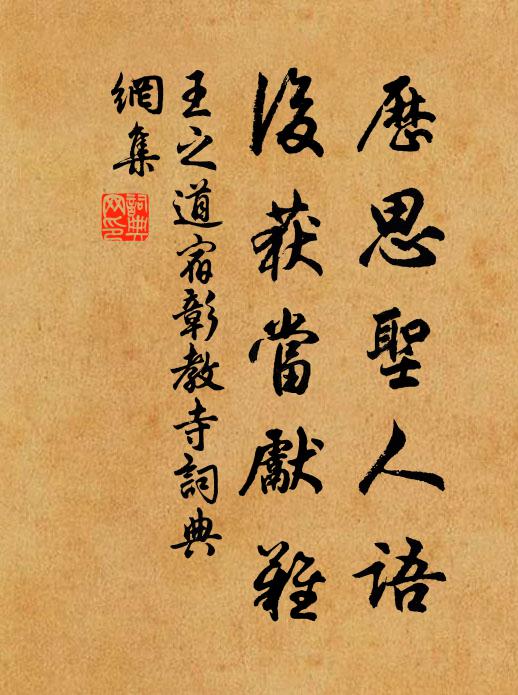 歷思聖人語
後获當獻難
王之道宿彰教寺詞典
網集
詞典
网印